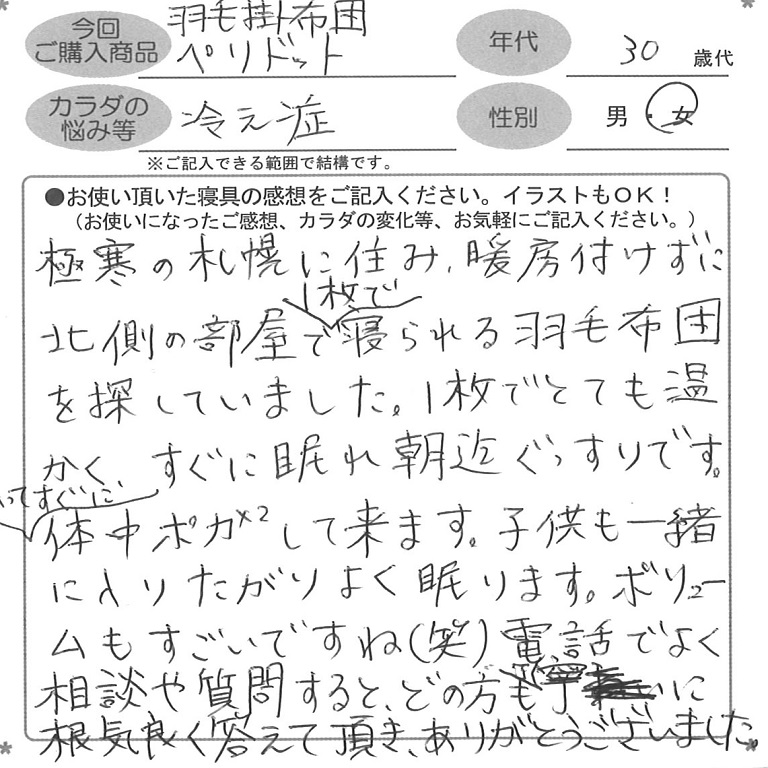 今回
ご購入商品
羽毛掛布団
ペリドット
年代
30 歳代
カラダの
悩み等
冷え症
性別
男・女
※ご記入できる範囲で結構です。
●お使い頂いた寝具の感想をご記入ください。イラストもOK!
(お使いになったご感想、カラダの変化等、お気軽にご記入ください。)
極寒の札幌に住み、暖房付けずに
1枚で
北側の部屋で寝られる羽毛布団
を探していました。1枚でとても温
かく、すぐに眠れ朝迄ぐっすりです。
ってすぐに、
体中ポカ×2して来ます。子供も一緒
に入りたがりよく眠ります。ボリュー
ムもすごいですね(笑)電話でよく
相談や質問すると、どの方も丁寧に
根気良く答えて頂き、ありがとうございました。